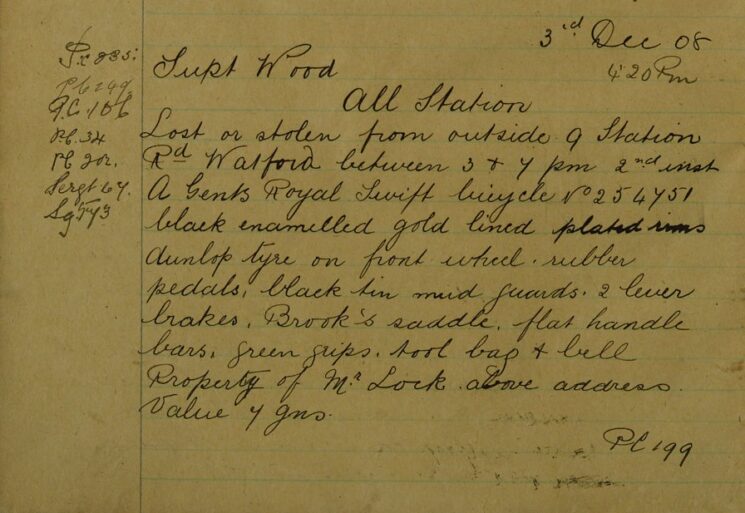 3rd Dec 08
4.20 Pm
Supt Wood
All Station
Lost or stolen from outside 9 Station
Rd Watford between 3 & 7 pm 2nd inst
A Gents Royal Swift bicycle No 254751
black enamelled gold lined plated rims
dunlop tyre on front wheel. rubber
pedals, black tin mud guards. 2 lever
brakes, Brook's saddle, flat handle
bars, green grips. tool bag & bell
Property of Mr Lock above address.
Value 7 gns.
PC 199
PC 34
PC 202.
Sergt 67.